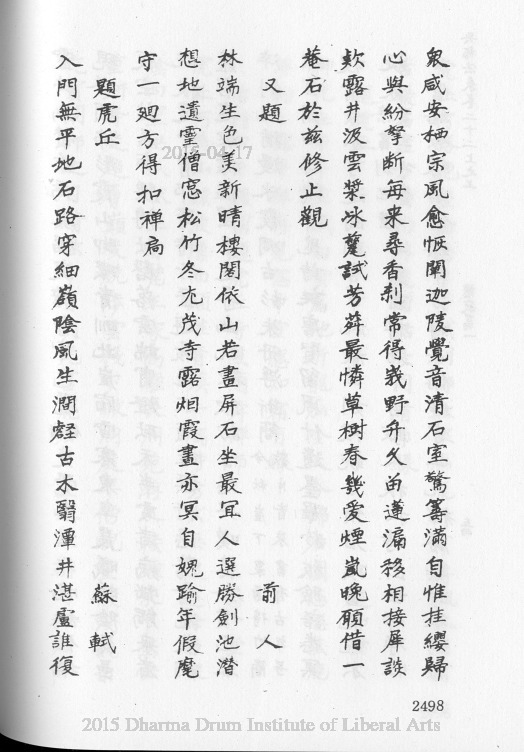 衆咸安栖宗風愈恢闡迦陵覺音清石室驚籌滿自惟挂纓歸
心與紛拏斷每来尋香刹常得義野升久卣蓮漏移相接犀談
欵露井汲雲漿冰甆試芳荈最憐草樹春幾愛煙嵐晚願借一
菴石於兹修止觀
又題　前人
林端生色美新晴樓閣依山若畫屏石坐最宜人選勝劍池潛
想地遺靈僧窓松竹冬尤茂寺露烟霞晝亦冥自媿踰年假麾
守一廻方得扣禪扃
題虎丘　蘇軾
入門無平地石路穿細嶺陰風生澗壑古木翳潭井湛盧誰復
2498
2016-04-17
2015 Dharma Drum Institute of Liberal Arts